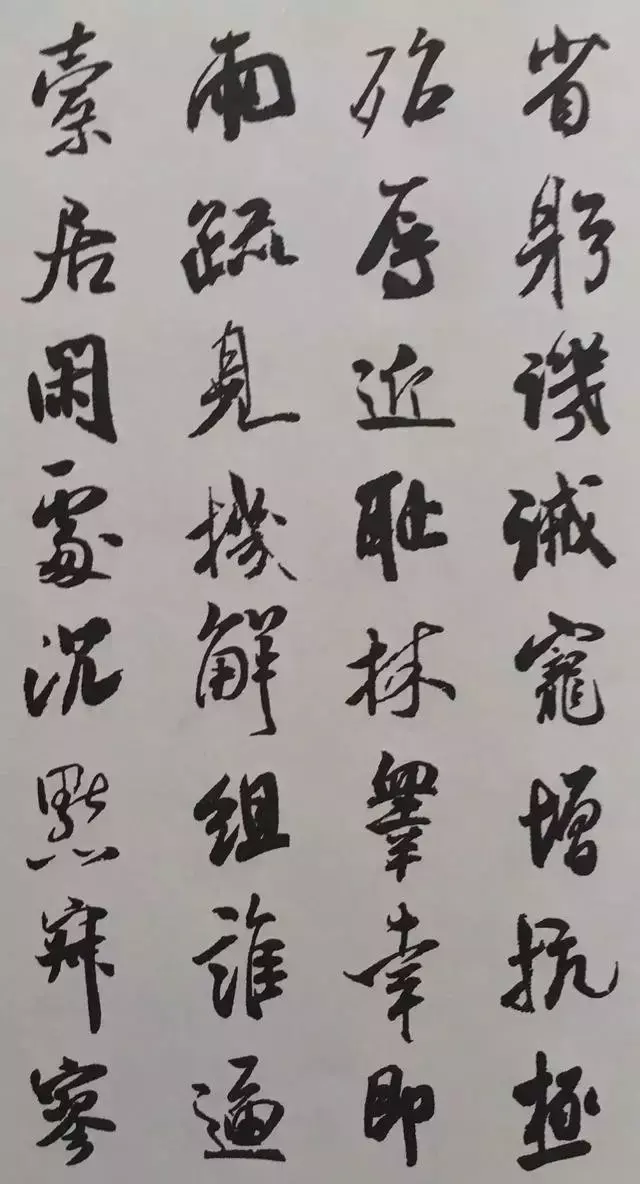 省躬譏誡寵增抗極
殆辱近耻林皋幸即
兩疏見機解組誰逼
索居閑處沉默寂寥